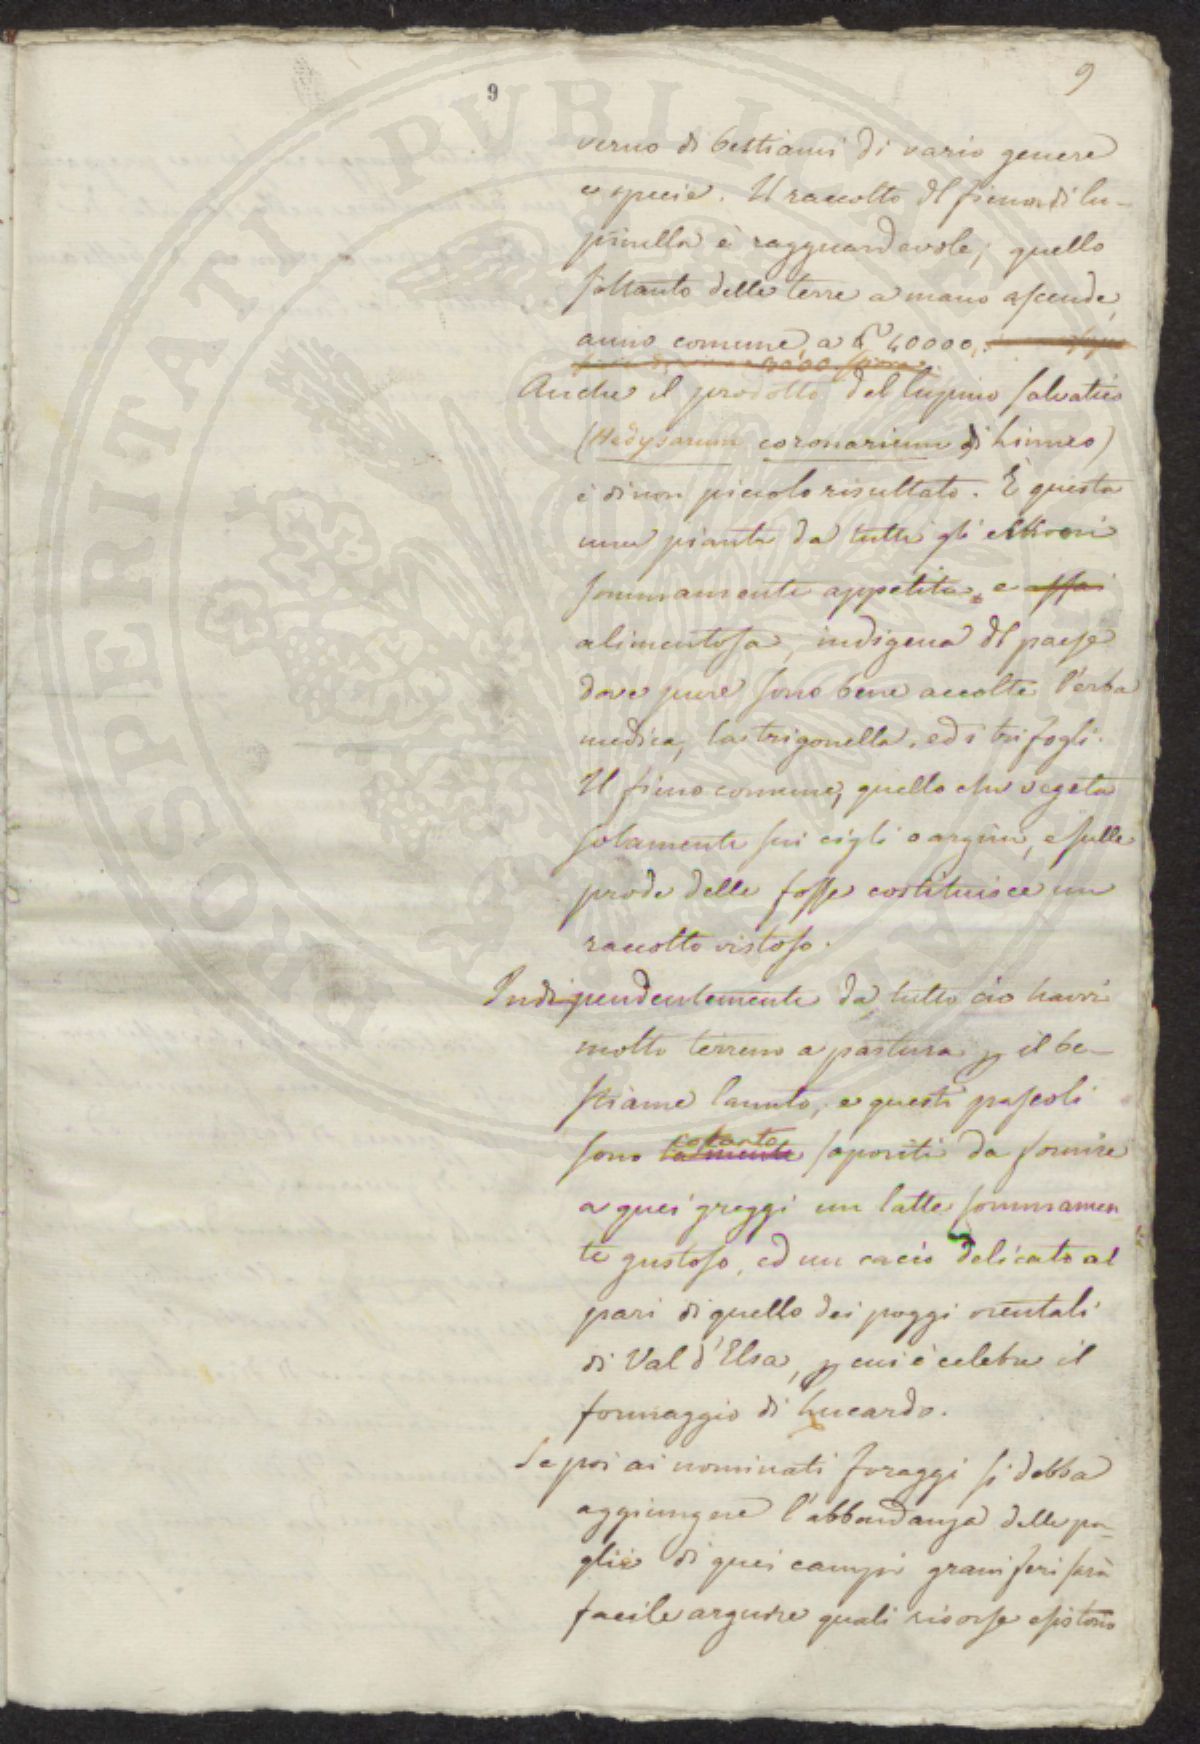 9
9
verno di bestiami di vario genere
e specie. Il raccolto del fieno di lu-
pinella è ragguardevole; quello
soltanto delle terre a mano ascende,
anno comune, a 40000.
Anche il prodotto del lupino salvatico
(Hedysarum coronarium di Linneo)
è di non piccolo risultato. È questa
una pianta da tutti gli erbivori
sommamente appetita, e assai
alimentosa, indigena del paese
dove pure sono bene accolte l'erba
medica, la trigonella, ed i trifogli.
Il fieno comune, quello che vegeta
solamente sui cigli o argini, e sulle
prode delle fosse costituisce un
raccolto vistoso.
Indipendentemente da tutto ciò havvi
molto terreno a pastura p il be-
stiame lanuto, e questi pascoli
sono cotanto
talmente saporiti da fornire
a quei greggi un latte sommamen
te gustoso, ed un cacio delicato al
pari di quello dei poggi orientali
di Val d'Elsa, p cui è celebre il
formaggio di Lucardo.
Se poi ai nominati foraggi si debba
aggiungere l'abbondanza delle pa-
glie di quei campi graniferi sarà
facile arguire quali risorse esistono
PROSPERITATI PUBLICAE